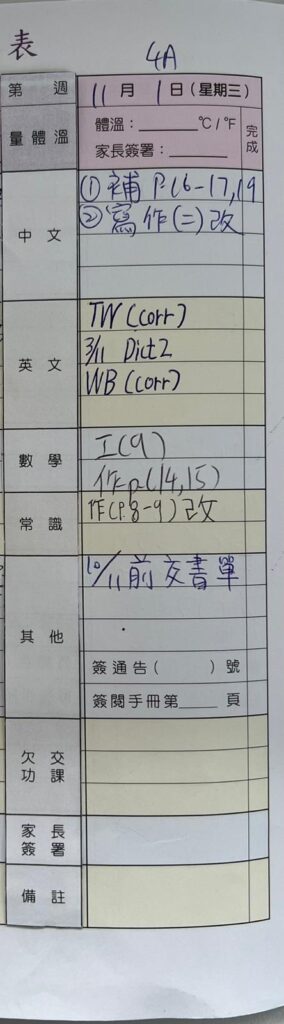 表
4A
第 週 11 月 1 日 (星期三)
量體溫 體溫：______ °C / °F 完成
家長簽署：______
中文 ① 補 P.16-17,19
② 寫作(二)改
英文 TW (corr)
3/11 Dict 2
WB (corr)
數學 工(9)
作p.(14,15)
常識 作(P.8-9)改
其他 10/11前交書單
簽通告 ( ) 號
簽閱手冊第____ 頁
欠交功課
家長簽署
備註